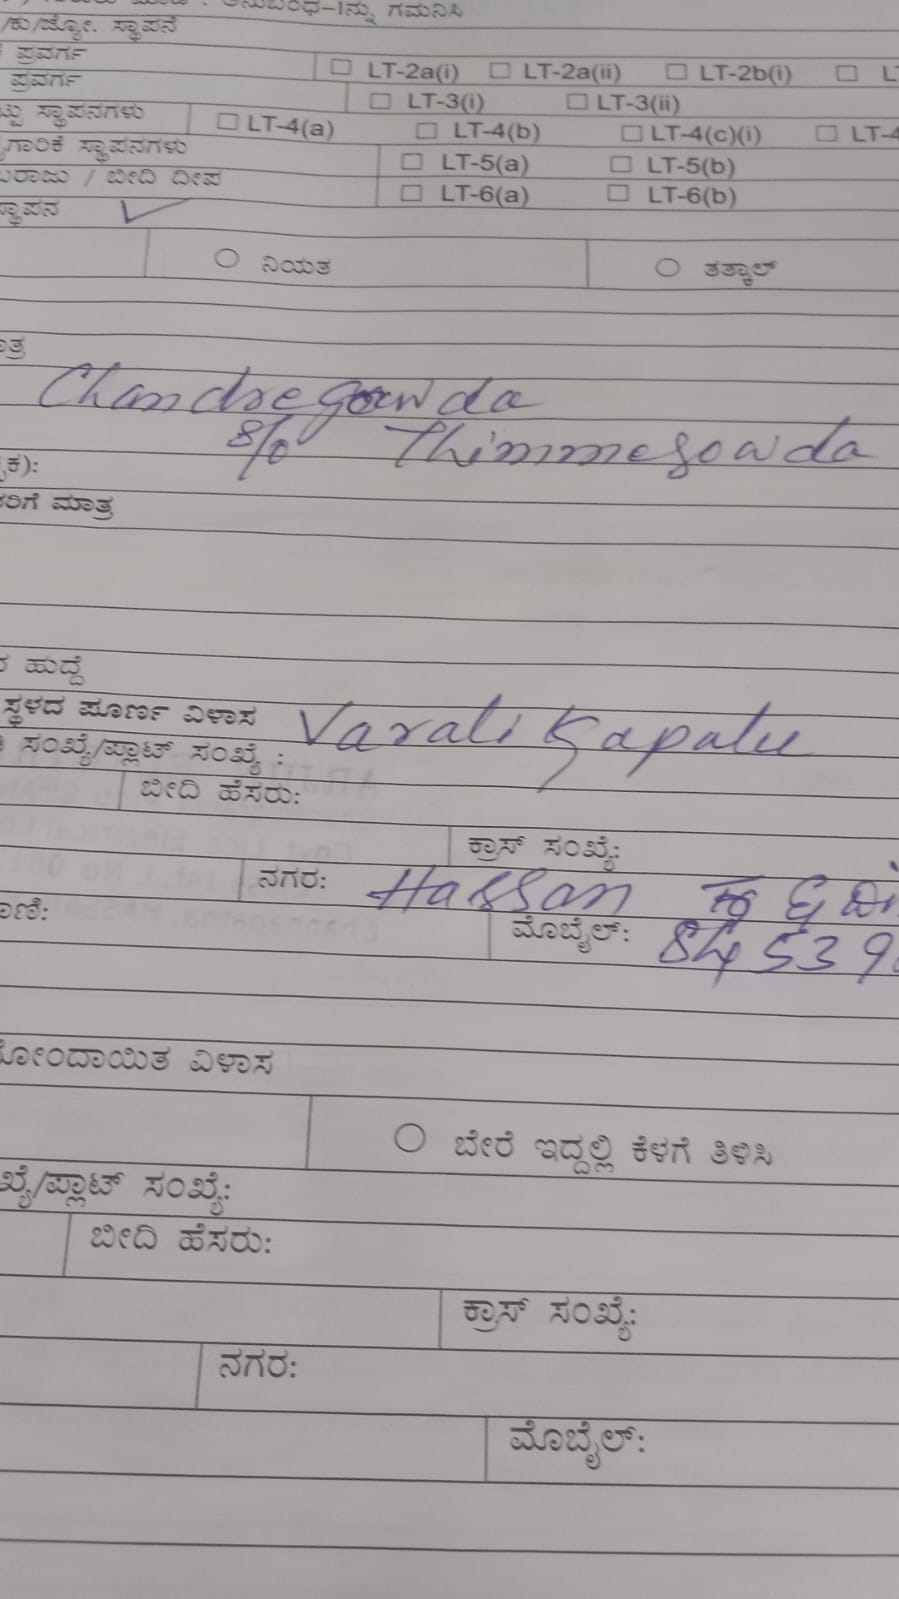 ಅನುಬಂಧ-1ನ್ನು ಗಮನಿಸಿ
/ಕು/ಜ್ಯೋ. ಸ್ಥಾಪನೆ
ಪ್ರವರ್ಗ ☐ LT-2a(i) ☐ LT-2a(ii) ☐ LT-2b(i) ☐
ಪ್ರವರ್ಗ ☐ LT-3(i) ☐ LT-3(ii)
ಸ್ಥಾಪನಗಳು ☐ LT-4(a) ☐ LT-4(b) ☐ LT-4(c)(i) ☐ LT-4
ಸ್ಥಾಪನಗಳು ☐ LT-5(a) ☐ LT-5(b)
/ ಬೀದಿ ದೀಪ ☐ LT-6(a) ☐ LT-6(b)
ಸ್ಥಾಪನ ✓
○ ನಿಯತ ○ ತತ್ಕಾಲ್
Chandregowda
S/o Thimmegowda
ಕ):
ರಿಗೆ ಮಾತ್ರ
ಹುದ್ದೆ
ಸ್ಥಳದ ಪೂರ್ಣ ವಿಳಾಸ Varali Kapalu
ಸಂಖ್ಯೆ/ಪ್ಲಾಟ್ ಸಂಖ್ಯೆ :
ಬೀದಿ ಹೆಸರು:
ಕ್ರಾಸ್ ಸಂಖ್ಯೆ:
ನಗರ: Hassan
ಮೊಬೈಲ್: 84539
ವಿಳಾಸ
○ ಬೇರೆ ಇದ್ದಲ್ಲಿ ಕೆಳಗೆ ತಿಳಿಸಿ
ಖ್ಯೆ/ಪ್ಲಾಟ್ ಸಂಖ್ಯೆ:
ಬೀದಿ ಹೆಸರು:
ಕ್ರಾಸ್ ಸಂಖ್ಯೆ:
ನಗರ:
ಮೊಬೈಲ್: